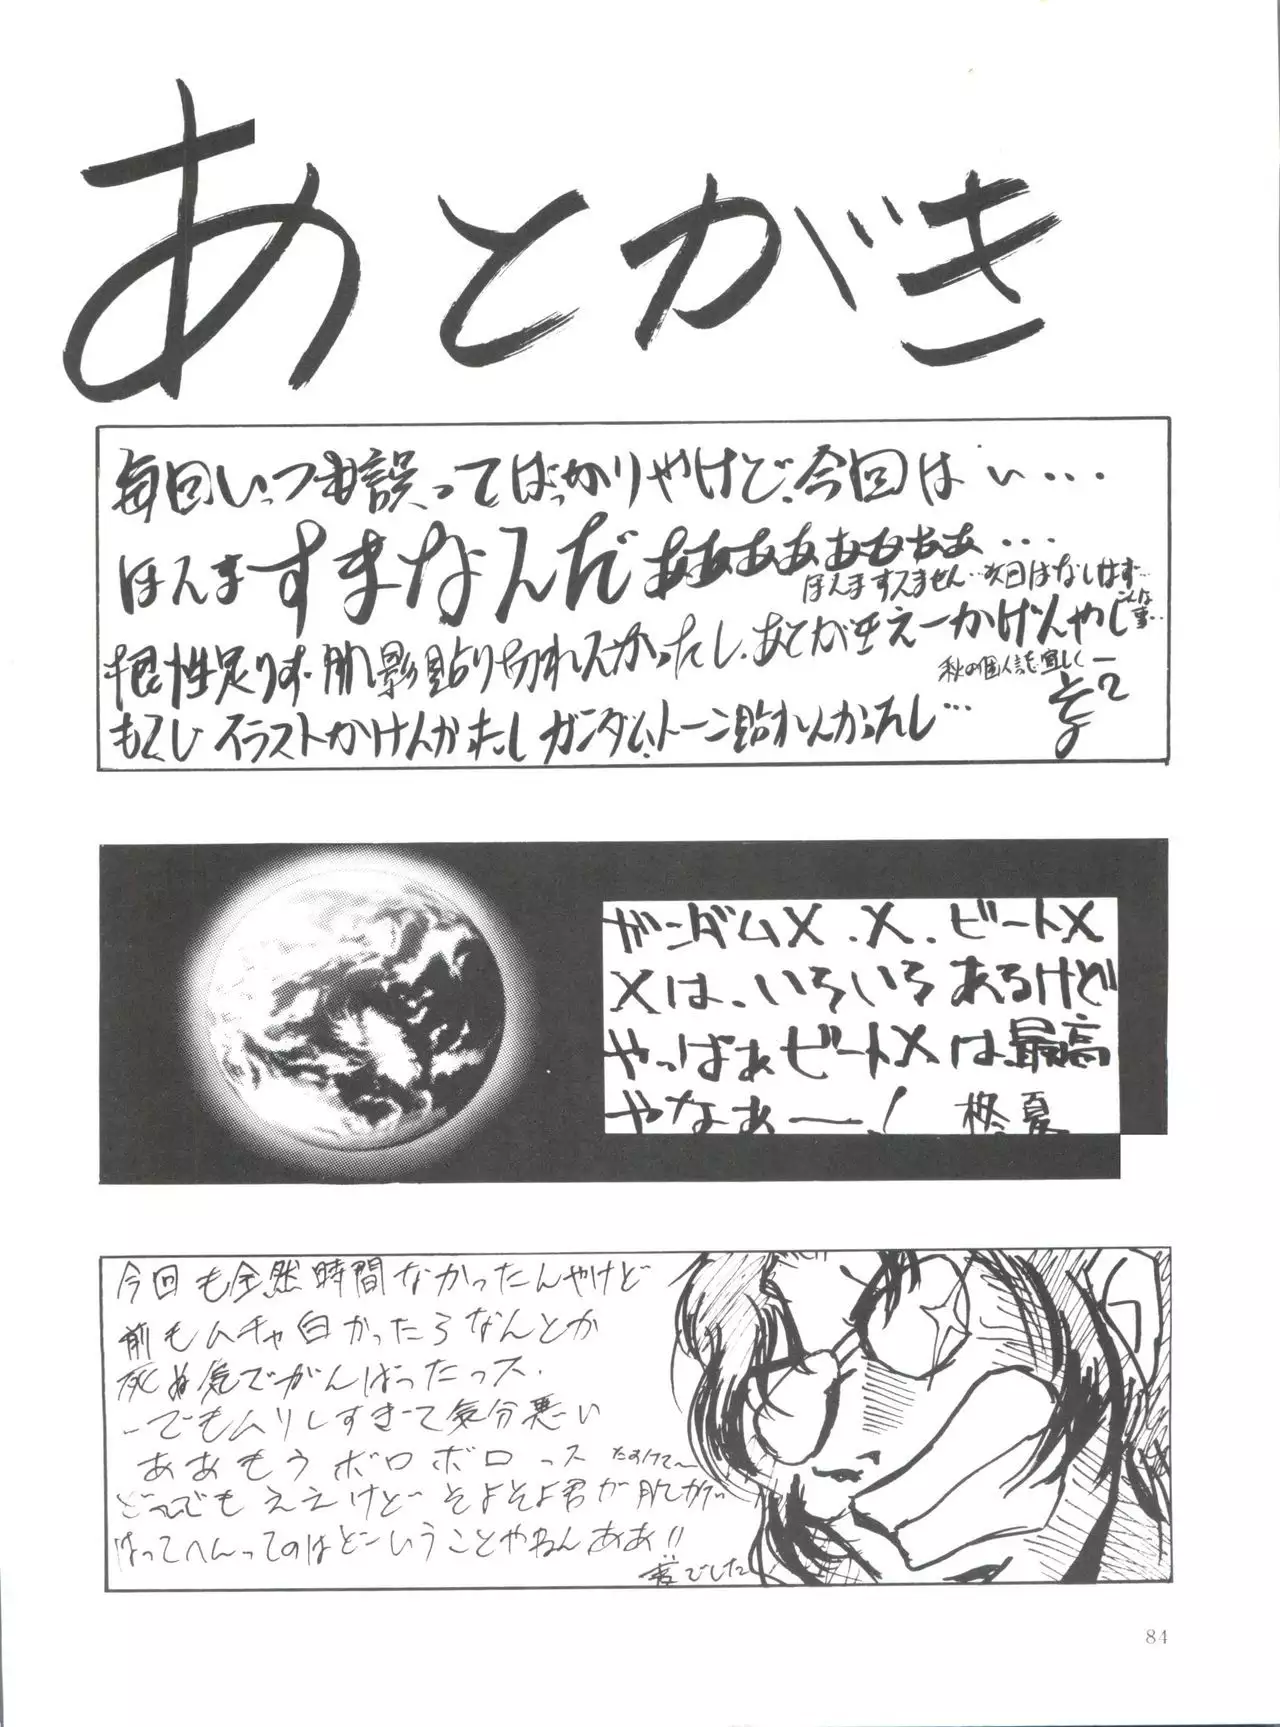 あとがき
毎回いつも誤ってばっかりやけど、今回はぃ...
ほんますまなんだぁぁぁぁぁぁぁぁ...
ほんますみません...次回はなしはず...
こんな事...
根性足りず、肌影貼り切れんかったし、あとがきえーかげんやし
秋の個人誌宜しくー
もくじイラストかけんかったし ガンダム、トーン貼れんかったし...
ガンダムX.X.ビートX
Xは、いろいろあるけど
やっぱぁビートXは最高
やなぁー! 柊夏
今回も全然時間なかったんやけど
前もムチャ白かったろなんとか
死ぬ気でがんばったっス.
ーでもムリしすぎて気分悪い
ああもうボロボロっス たすけて〜
どっでもええけどそよそよ君が肌かげ
はってへんってのはどーいうことやねんああ!!
でした
84